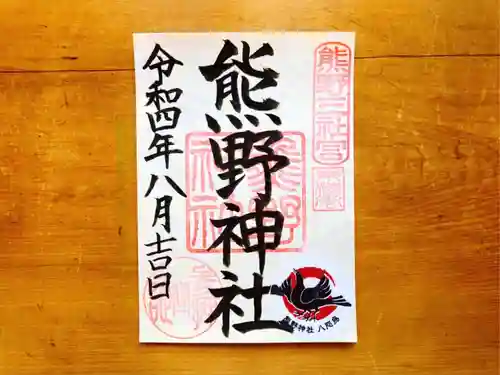 熊野三社宮
熊野神社
令和四年八月吉日
熊野神社 八咫烏